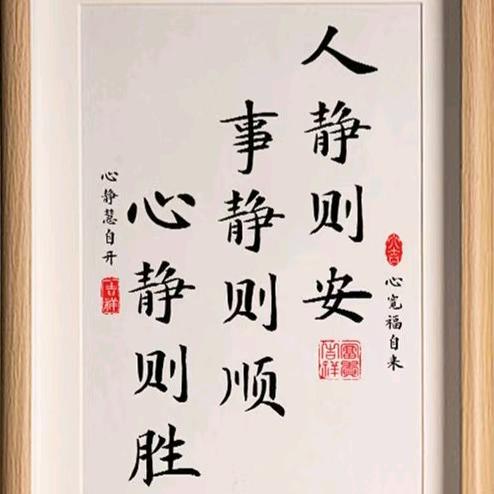 心宽福自来
人静则安
事静则顺
心静则胜
心静慧自开
吉祥